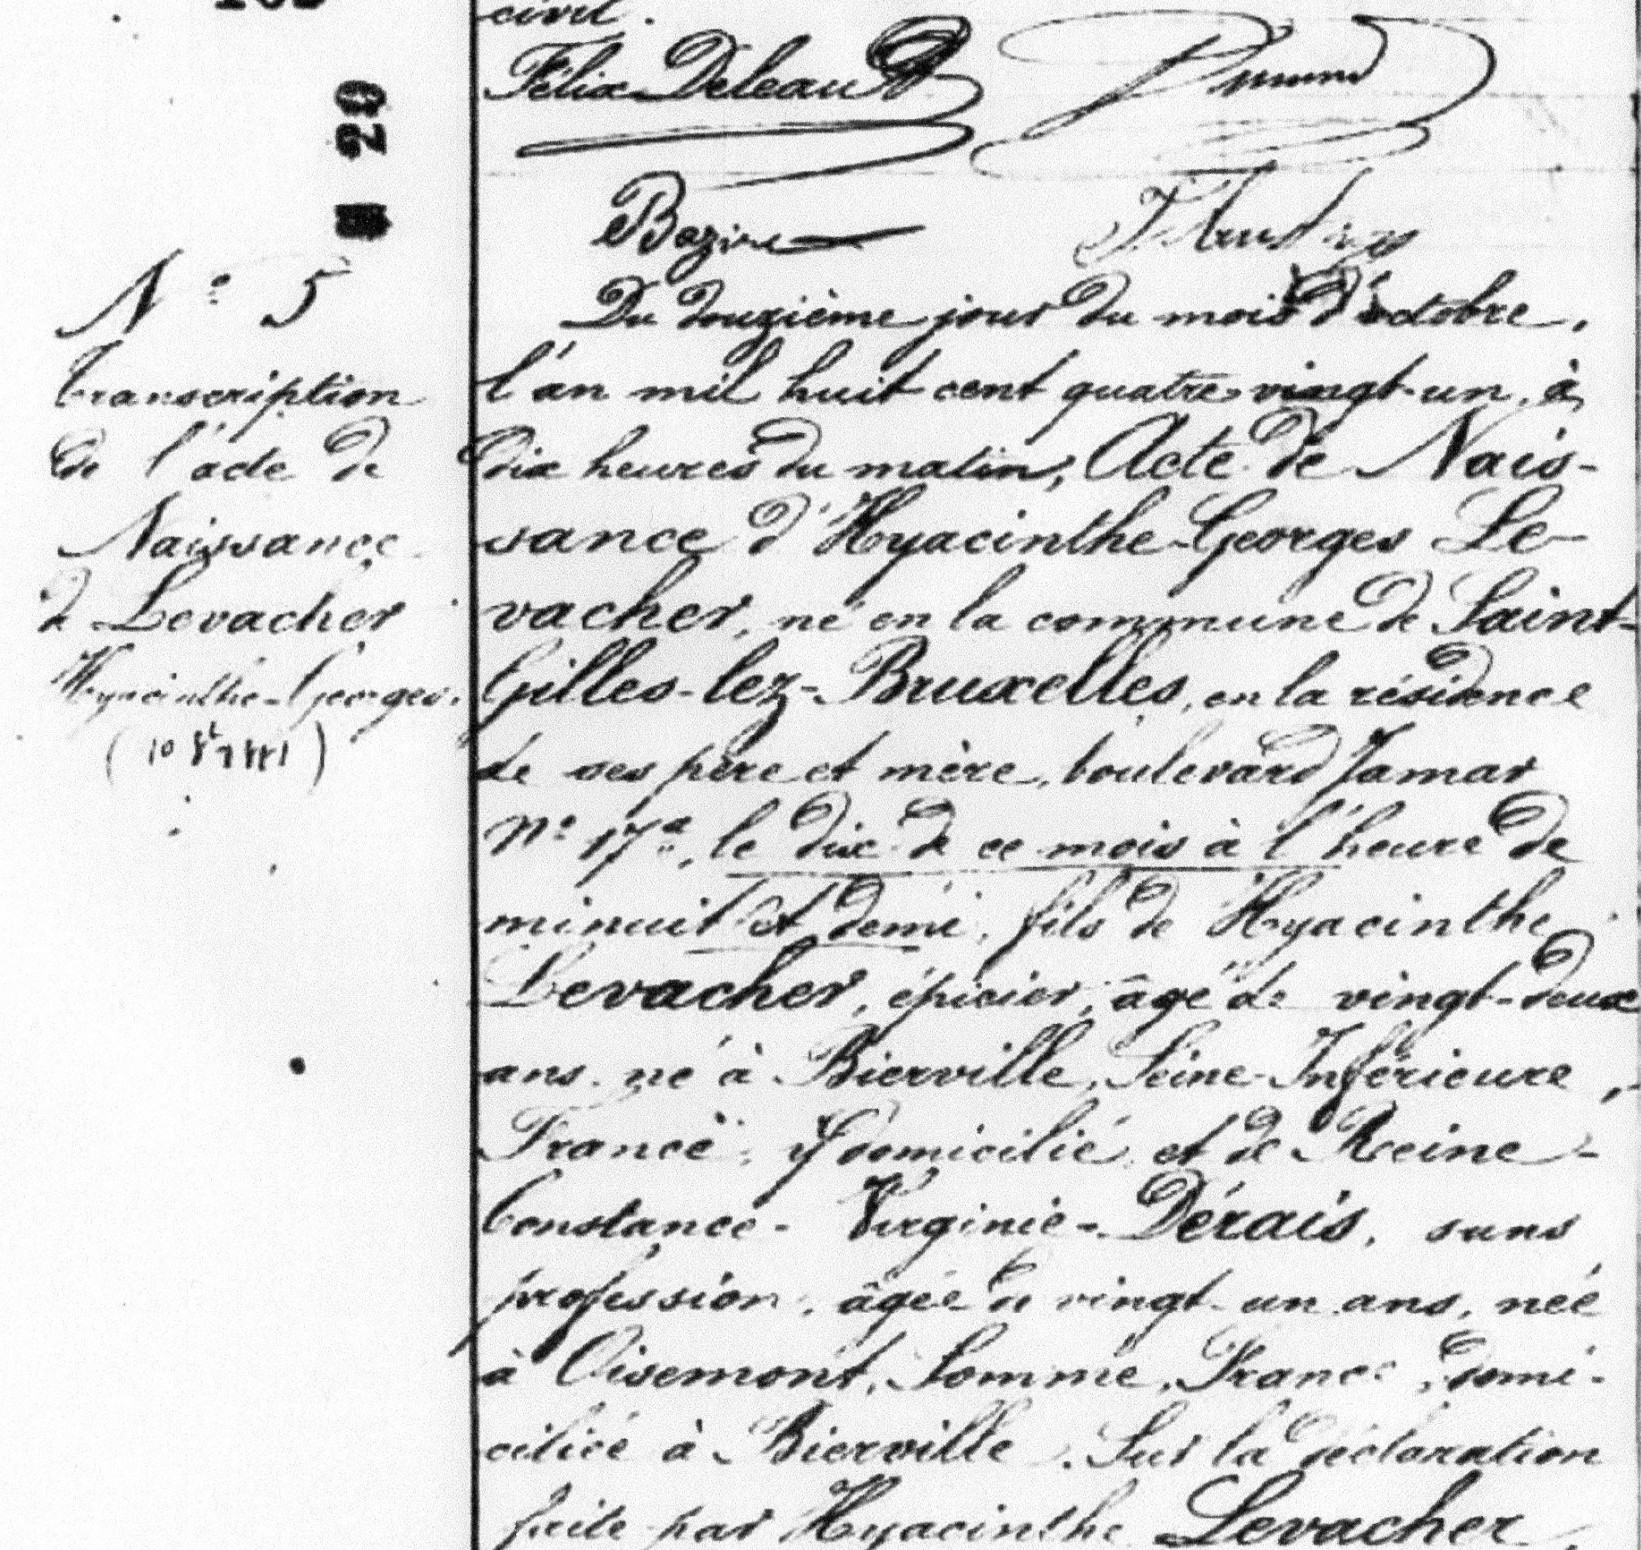 civil.
Félix Deleau
Bazire
N° 5
Transcription
de l'acte de
Naissance
de Levacher
Hyacinthe-Georges.
Du douzième jour du mois d'octobre,
l'an mil huit cent quatre-vingt-un, à
dix heures du matin, Acte de Nais-
sance d'Hyacinthe-Georges Le-
vacher, né en la commune de Saint-
Gilles-lez-Bruxelles, en la résidence
de ses père et mère, boulevard Jamar
N° 17a, le dix de ce mois à l'heure de
minuit et demi, fils de Hyacinthe
Levacher, épicier, âgé de vingt-deux
ans, né à Bierville, Seine-Inférieure,
France, y domicilié, et de Reine-
Constance-Virginie-Dérais, sans
profession, âgée de vingt-un ans, née
à Oisemont, Somme, France, domi-
ciliée à Bierville. Sur la déclaration
faite par Hyacinthe Levacher,